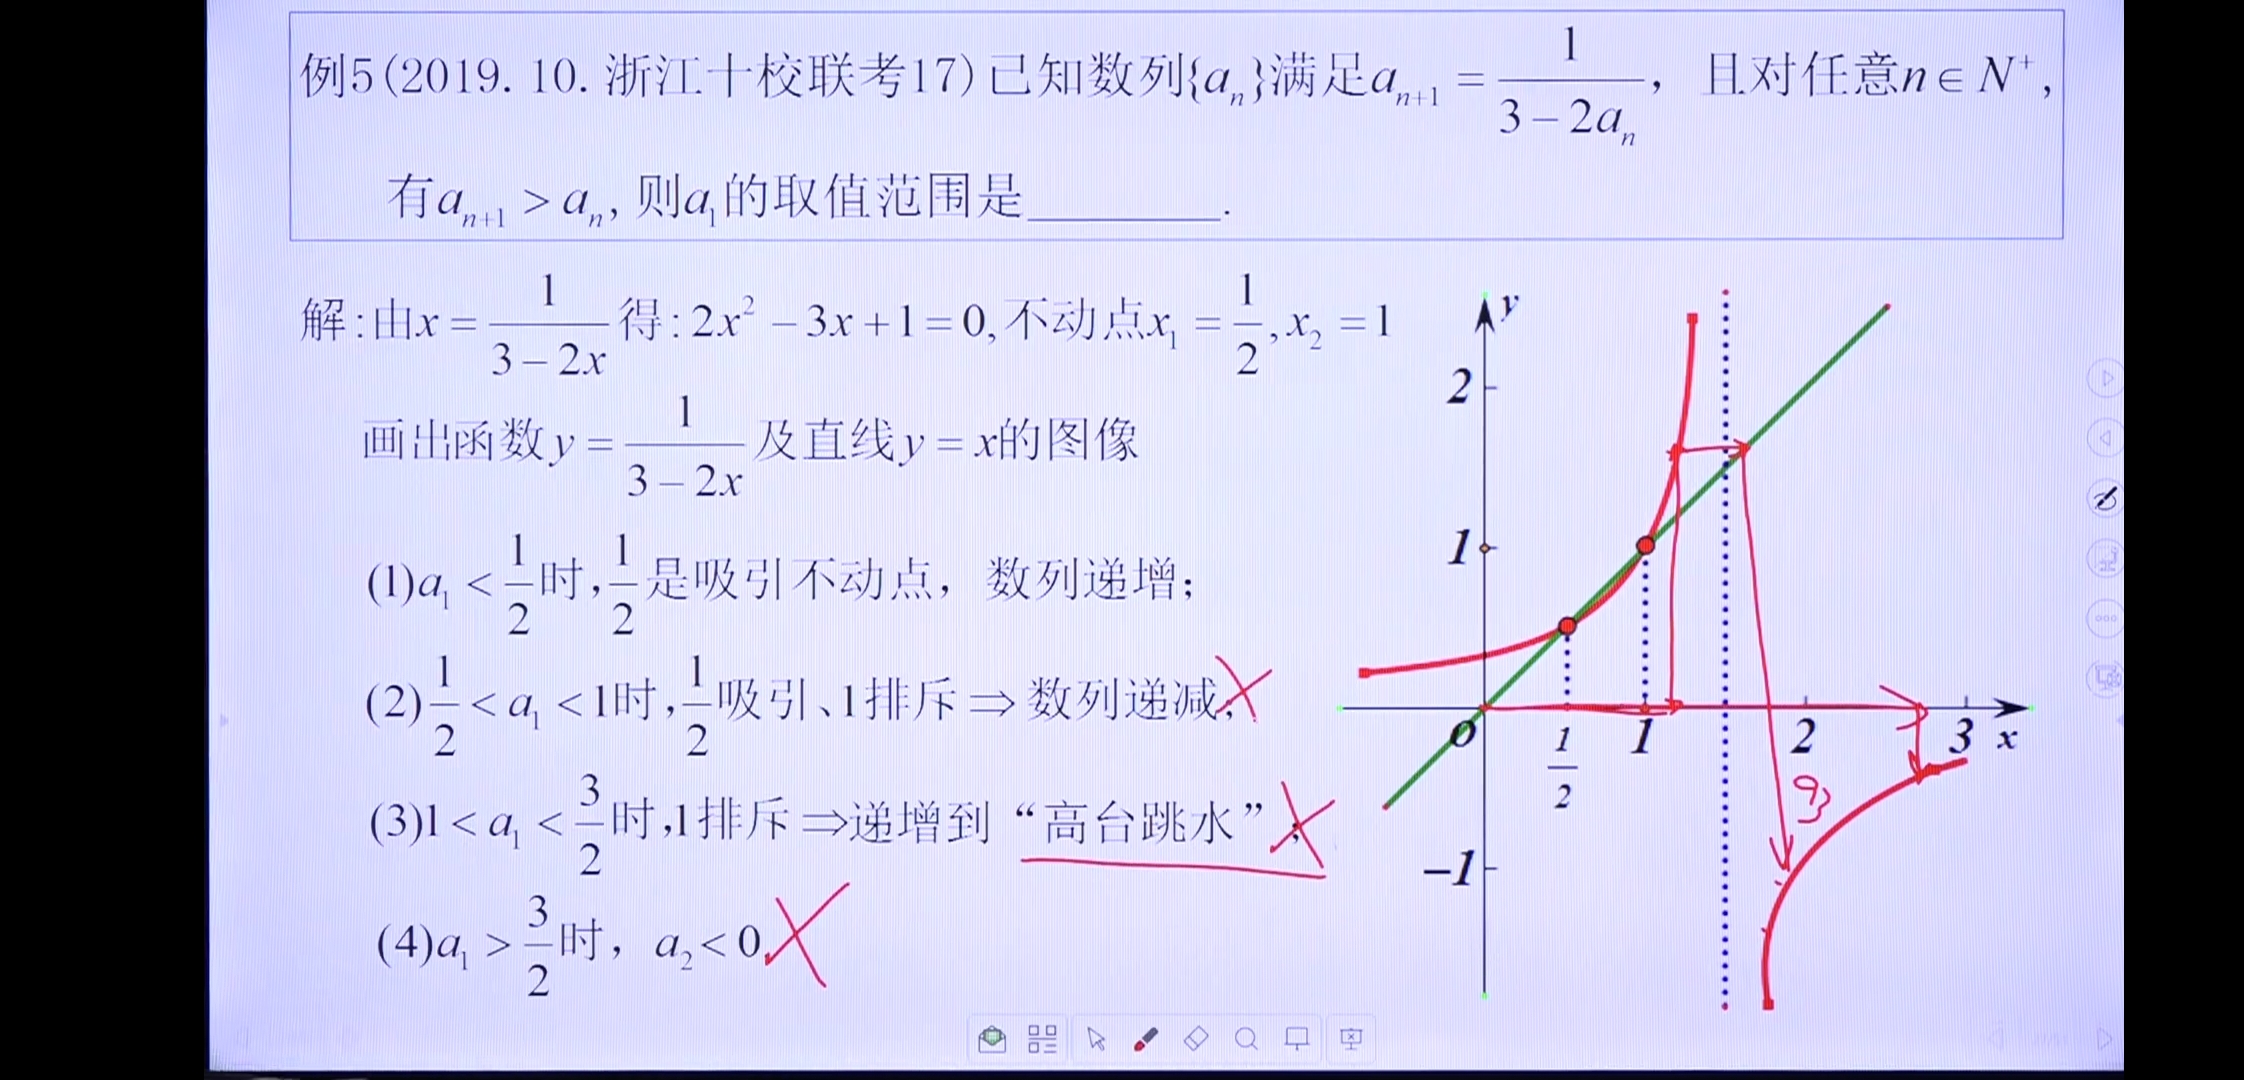 例5(2019.10.浙江十校联考17)已知数列{aₙ}满足aₙ₊₁ = 1/(3－2aₙ)，且对任意n∈N⁺,
有aₙ₊₁ > aₙ, 则a₁的取值范围是________.
解:由x = 1/(3－2x) 得:2x²－3x+1=0, 不动点x₁ = 1/2, x₂ = 1
画出函数y = 1/(3－2x) 及直线y = x的图像
(1)a₁ < 1/2 时, 1/2 是吸引不动点，数列递增;
(2)1/2 < a₁ < 1时, 1/2 吸引、1排斥⇒数列递减;
(3)1 < a₁ < 3/2 时,1排斥⇒递增到“高台跳水”;
(4)a₁ > 3/2 时，a₂ < 0
y
2
1
O
1/2
1
2
3
x
a₃
－1